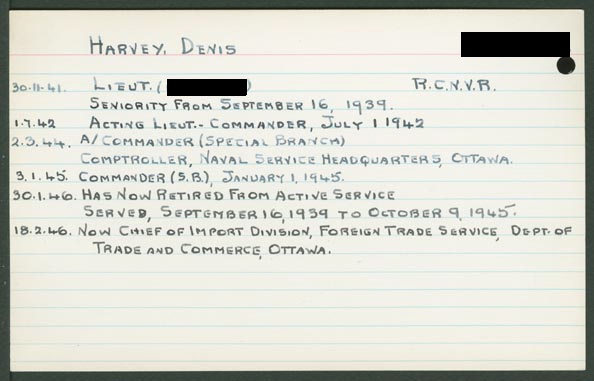 HARVEY, DENIS
30.11.41. LIEUT. ( ) R.C.N.V.R.
SENIORITY FROM SEPTEMBER 16, 1939.
1.7.42 ACTING LIEUT.- COMMANDER, JULY 1 1942
2.3.44. A/COMMANDER (SPECIAL BRANCH)
COMPTROLLER, NAVAL SERVICE HEADQUARTERS, OTTAWA.
3.1.45. COMMANDER (S.B.), JANUARY 1, 1945.
30.1.46. HAS NOW RETIRED FROM ACTIVE SERVICE
SERVED, SEPTEMBER 16, 1939 TO OCTOBER 9, 1945.
18.2.46. NOW CHIEF OF IMPORT DIVISION, FOREIGN TRADE SERVICE, DEPT. OF
TRADE AND COMMERCE, OTTAWA.